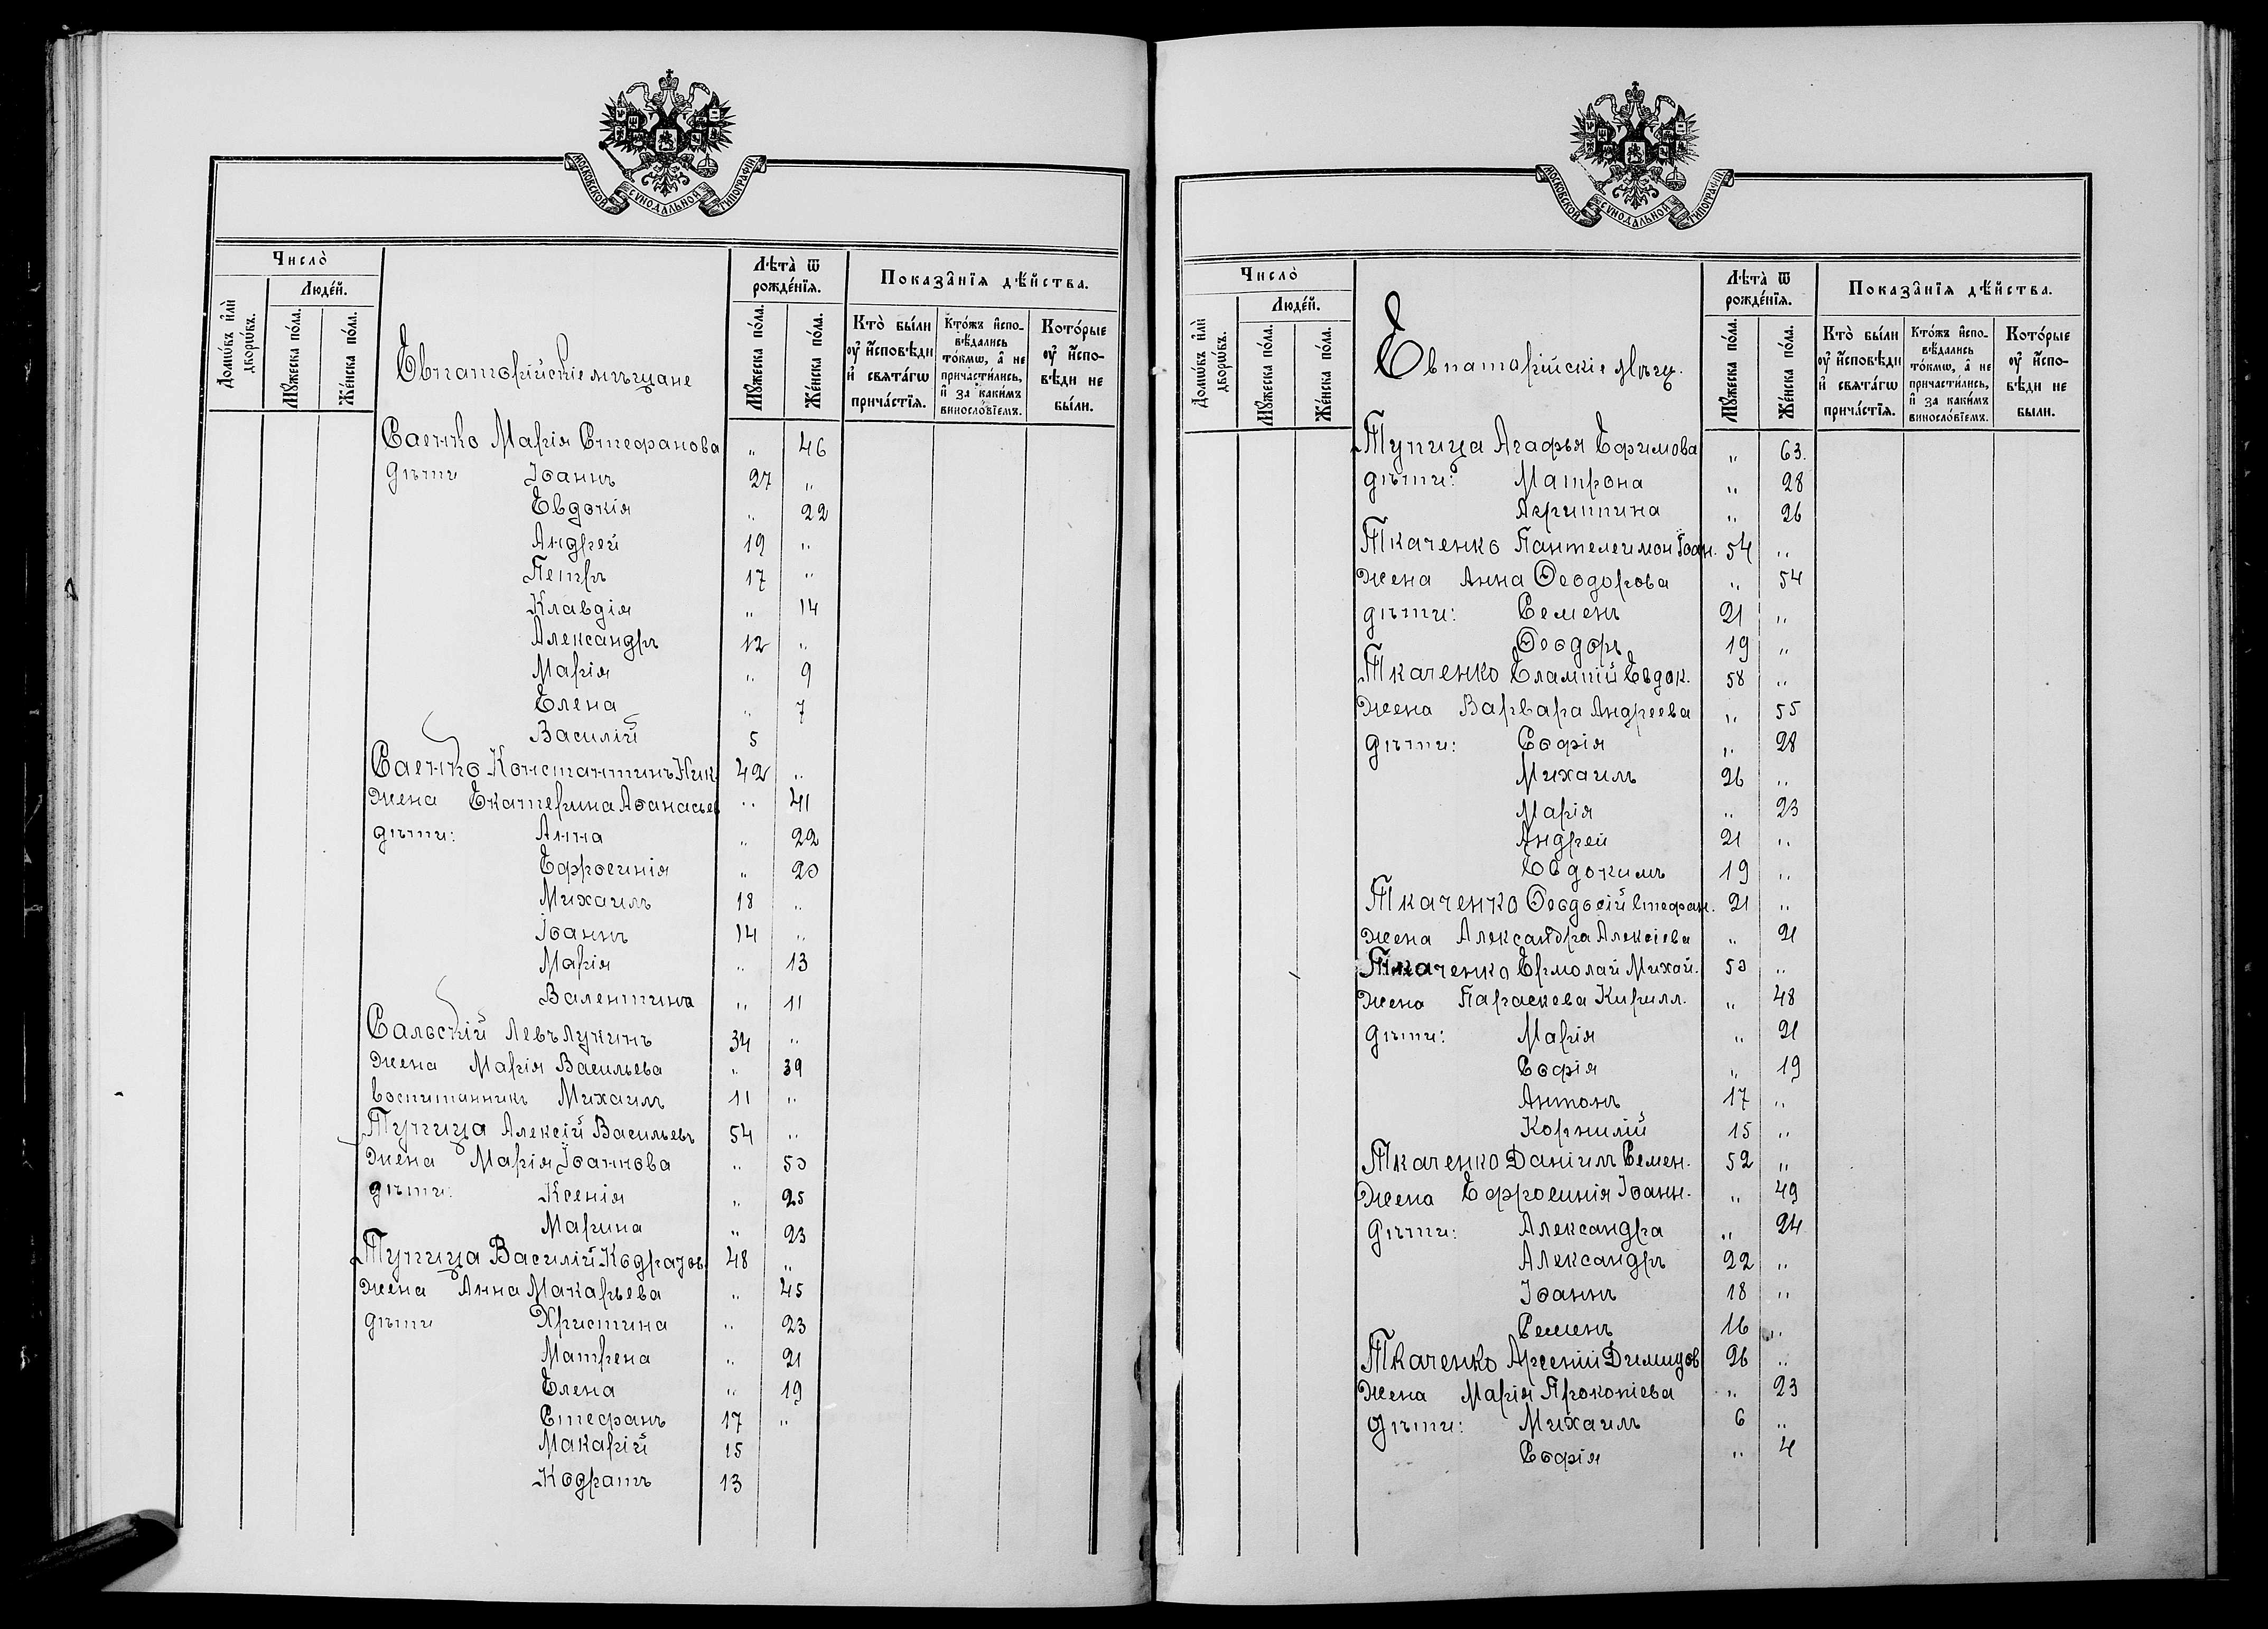 МОСКОВСКОЙ СУНОДАЛЬНОЙ ТИПОГРАФІИ
Число̀
Люде́й.
Домѡ́въ и҆лѝ дворѡ́въ.
Мꙋ́жеска по́ла.
Же́нска по́ла.
Евпаторійскіе мѣщане
Лѣта̀ ѿ рожде́нїѧ.
Мꙋ́жеска по́ла.
Же́нска по́ла.
Показа̂нїѧ дѣ́йства.
Кто̀ бы́ли ᲂу҆ и҆сповѣди и҆ свѧта́гѡ прича́стїѧ.
Кто́жъ и҆спо-вѣдались то́кмѡ, а҆ не причасти́лись, и҆ за каки́мъ винослові́емъ.
Кото́рые ᲂу҆ и҆спо-вѣди не бы́ли.
Саенко Марія Стефанова " 46
дѣти Іоаннъ 27 "
Евдокія " 22
Андрей 19 "
Петръ 17 "
Клавдія " 14
Александръ 12 "
Марія " 9
Елена " 7
Василій 5
Саенко Константинъ Ник. 42 "
жена Екатерина Аѳанасьев " 41
дѣти: Анна " 22
Ефросинія " 20
Михаилъ 18 "
Іоаннъ 14 "
Марія " 13
Валентина " 11
Сальскій Левъ Лукинъ 34 "
жена Марія Васильева " 39
воспитанникъ Михаилъ 11 "
Тупица Алексій Васильевъ 54 "
жена Марія Іоаннова " 50
дѣти: Ксенія " 25
Марина " 23
Тупица Василій Кодратов. 48 "
жена Анна Макарьева " 45
дѣти Христина " 23
Матрена " 21
Елена " 19
Стефанъ 17 "
Макарій 15
Кодратъ 13
МОСКОВСКОЙ СУНОДАЛЬНОЙ ТИПОГРАФІИ
Число̀
Люде́й.
Домѡ́въ и҆лѝ дворѡ́въ.
Мꙋ́жеска по́ла.
Же́нска по́ла.
Евпаторійскіе мѣщ.
Лѣта̀ ѿ рожде́нїѧ.
Мꙋ́жеска по́ла.
Же́нска по́ла.
Показа̂нїѧ дѣ́йства.
Кто̀ бы́ли ᲂу҆ и҆сповѣди и҆ свѧта́гѡ прича́стїѧ.
Кто́жъ и҆спо-вѣдались то́кмѡ, а҆ не причасти́лись, и҆ за каки́мъ винослові́емъ.
Кото́рые ᲂу҆ и҆спо-вѣди не были.
Тупица Агафья Ефимова " 63.
дѣти: Матрона " 28
Агриппина " 26
Ткаченко Пантелеимон Іоан. 54 "
жена Анна Ѳеодорова " 54
дѣти: Семенъ 21 "
Ѳеодоръ 19 "
Ткаченко Елампій Евдок. 58 "
жена Варвара Андреева " 55
дѣти: Софія " 28
Михаилъ 26 "
Марія " 23
Андрей 21 "
Евдокимъ 19 "
Ткаченко Ѳеодосій Стефан. 21 "
жена Александра Алексіева " 21
Ткаченко Ермолай Михай. 50 "
жена Параскева Кирилл. " 48
дѣти: Марія " 21
Софія " 19
Антонъ 17 "
Корнилій 15 "
Ткаченко Даніилъ Семен. 52 "
жена Ефросинія Іоанн. " 49
дѣти: Александра " 24
Александръ 22 "
Іоаннъ 18 "
Семенъ 16 "
Ткаченко Арсеній Димидов 26 "
жена Марія Прокопіева " 23
дѣти: Михаилъ 6 "
Софія " 4